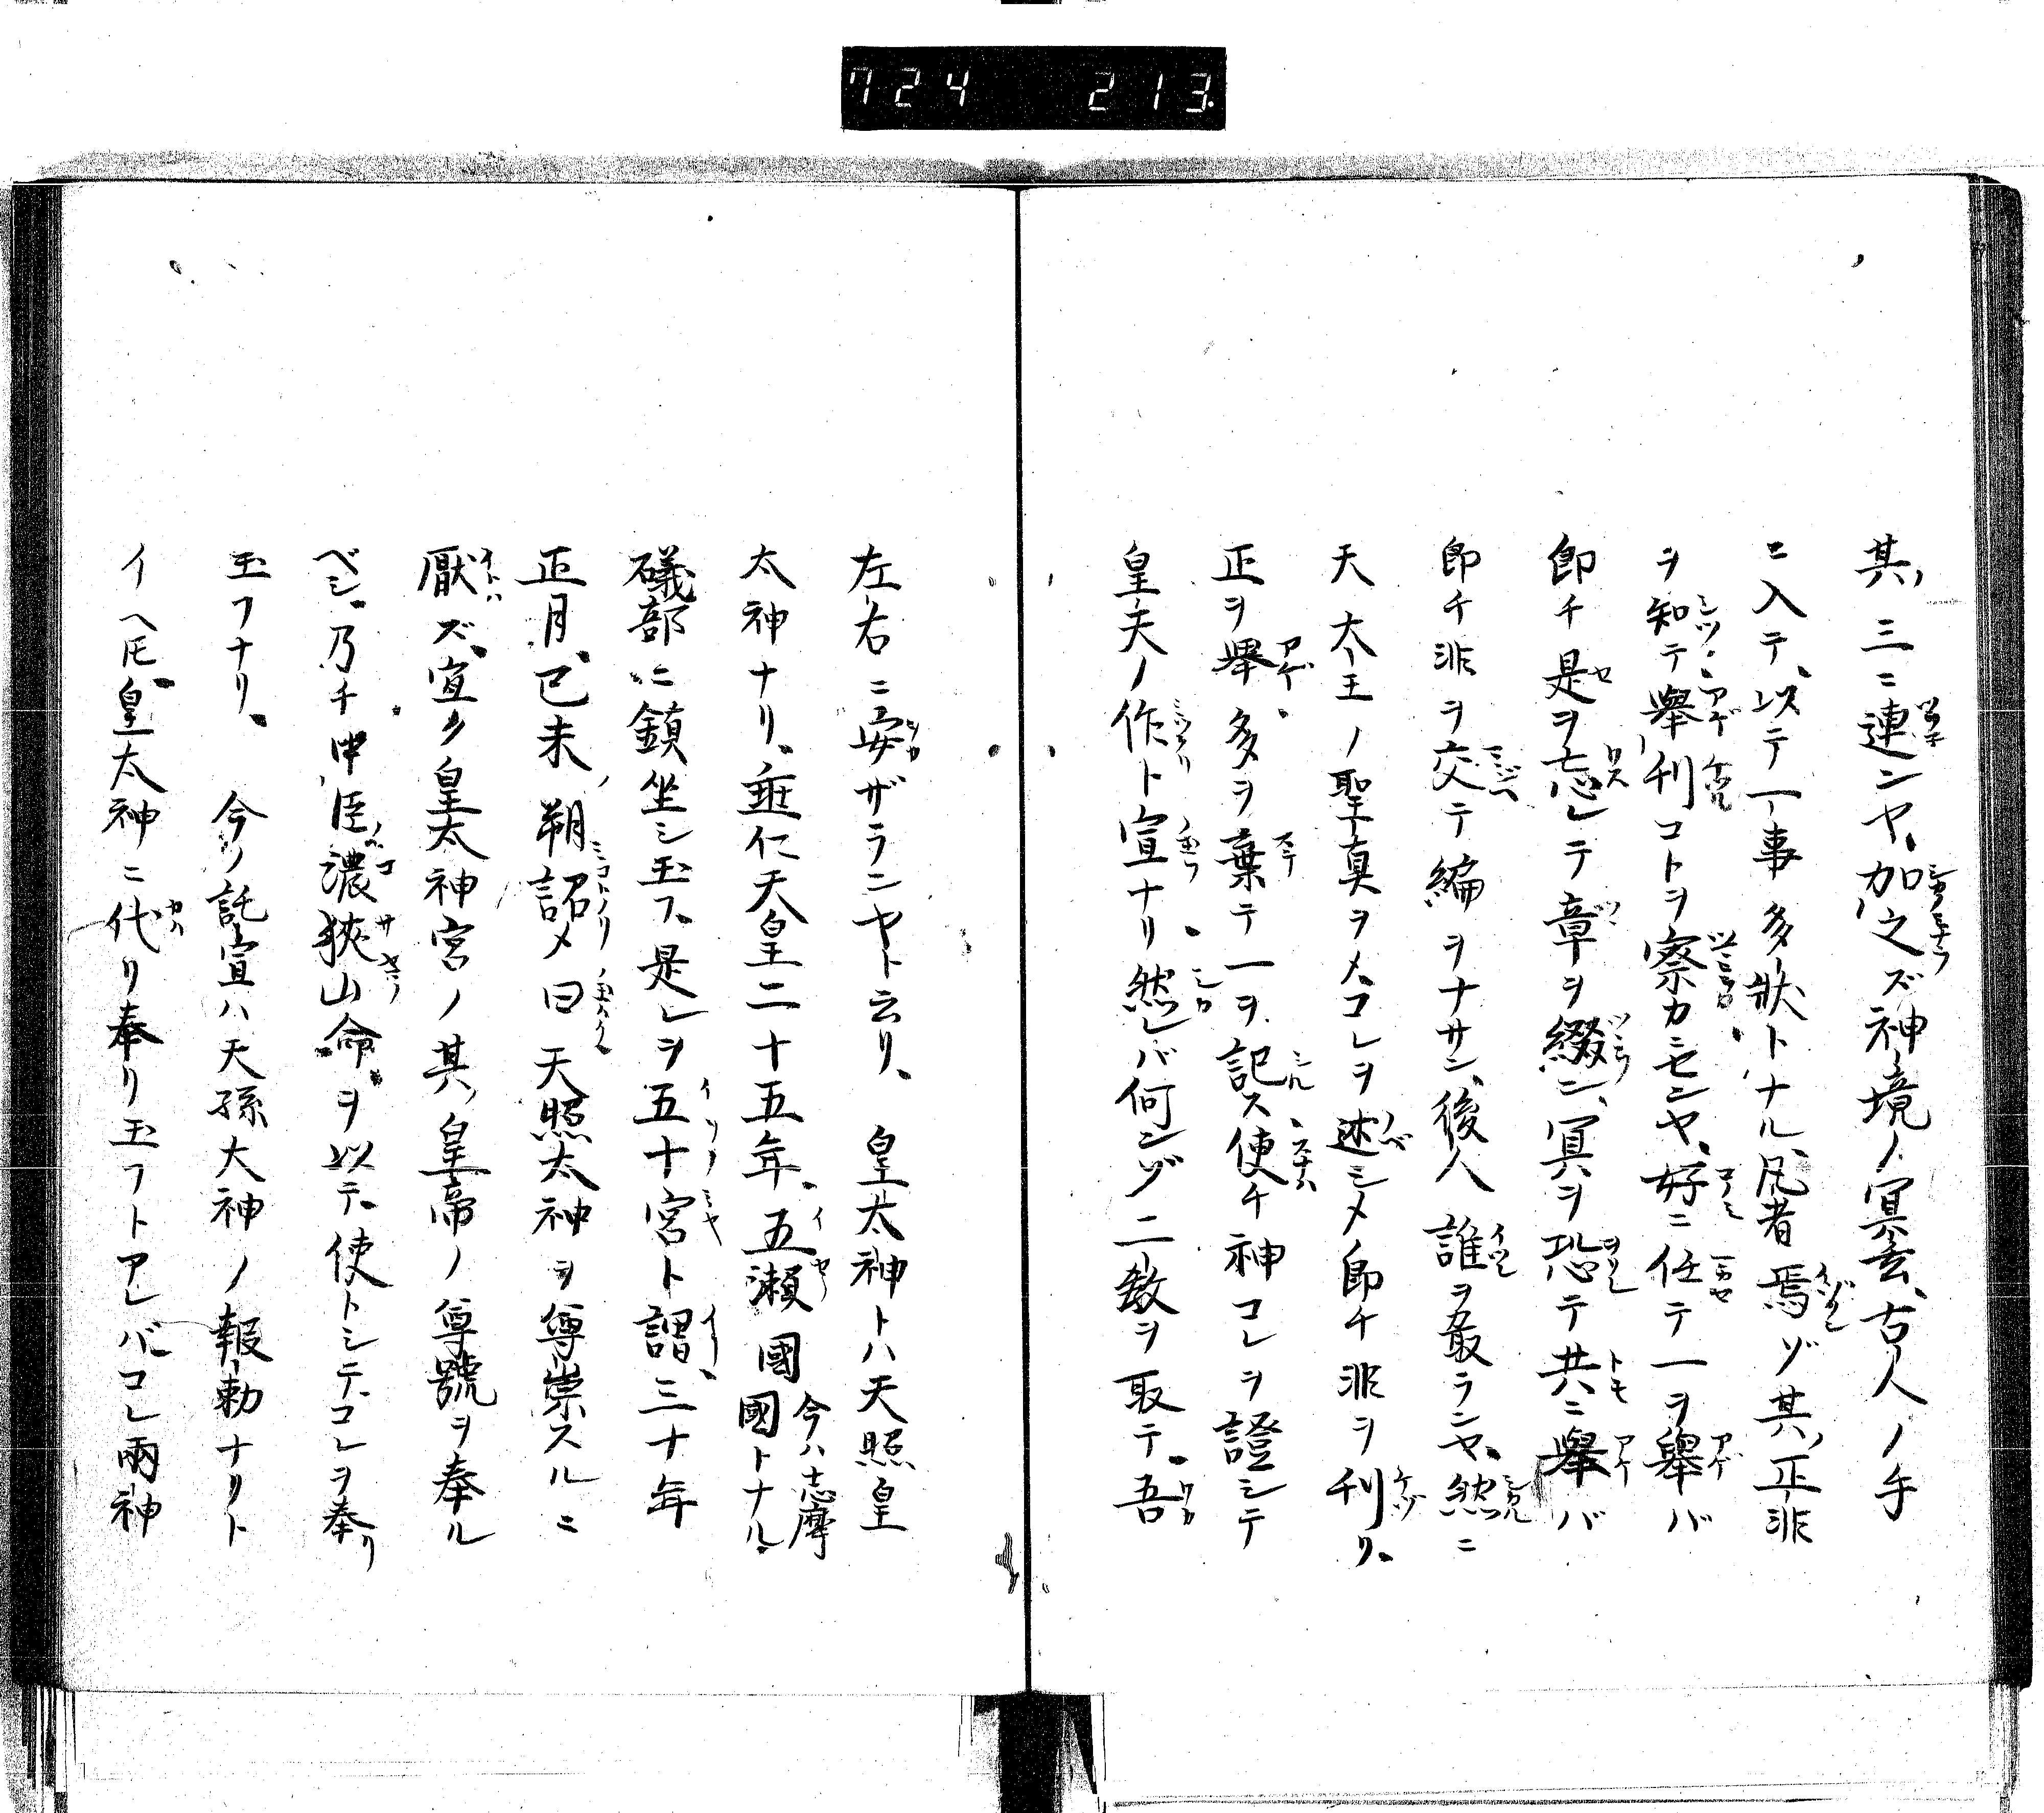 724 213
其ノ三ニ連ンヤ、加之ズ神境ノ冥玄、古人ノ手
ニ入テ、以テ一事多状トナル、凡者焉ゾ其ノ正非
ヲ知テ擧刊コトヲ察カニセンヤ、好ニ任テ一ヲ擧バ
即チ是ヲ忘レテ章ヲ綴ン、冥ヲ恐テ共ニ擧バ
即チ非ヲ交テ編ヲナサン、後人誰ヲ最ランヤ、然ニ
天太王ノ聖真ヲメ、コレヲ述シメ、即チ非ヲ刊リ、
正ヲ擧、多ヲ棄テ一ヲ記ス、便チ神コレヲ證シテ
皇夫ノ作ト宣ナリ、然レバ何ンゾ二教ヲ取テ、吾
左右ニ安ザランヤト云リ、皇太神トハ天照皇
太神ナリ、垂仁天皇二十五年、五瀬國今ハ志摩國トナル、
礒部ニ鎮坐シ玉フ、是レヲ五十宮ト謂、三十年
正月、已未ノ朔詔メ曰、天照太神ヲ尊崇スルニ
厭ズ、宣ク皇太神宮ノ其ノ皇帝ノ尊號ヲ奉ル
ベシ、乃チ中臣濃狹山命ヲ以テ、使トシテ、コレヲ奉リ
玉フナリ、今ノ託宣ハ天孫大神ノ報勅ナリト
イヘ𪜈、皇太神ニ代リ奉リ玉フトアレバ、コレ兩神